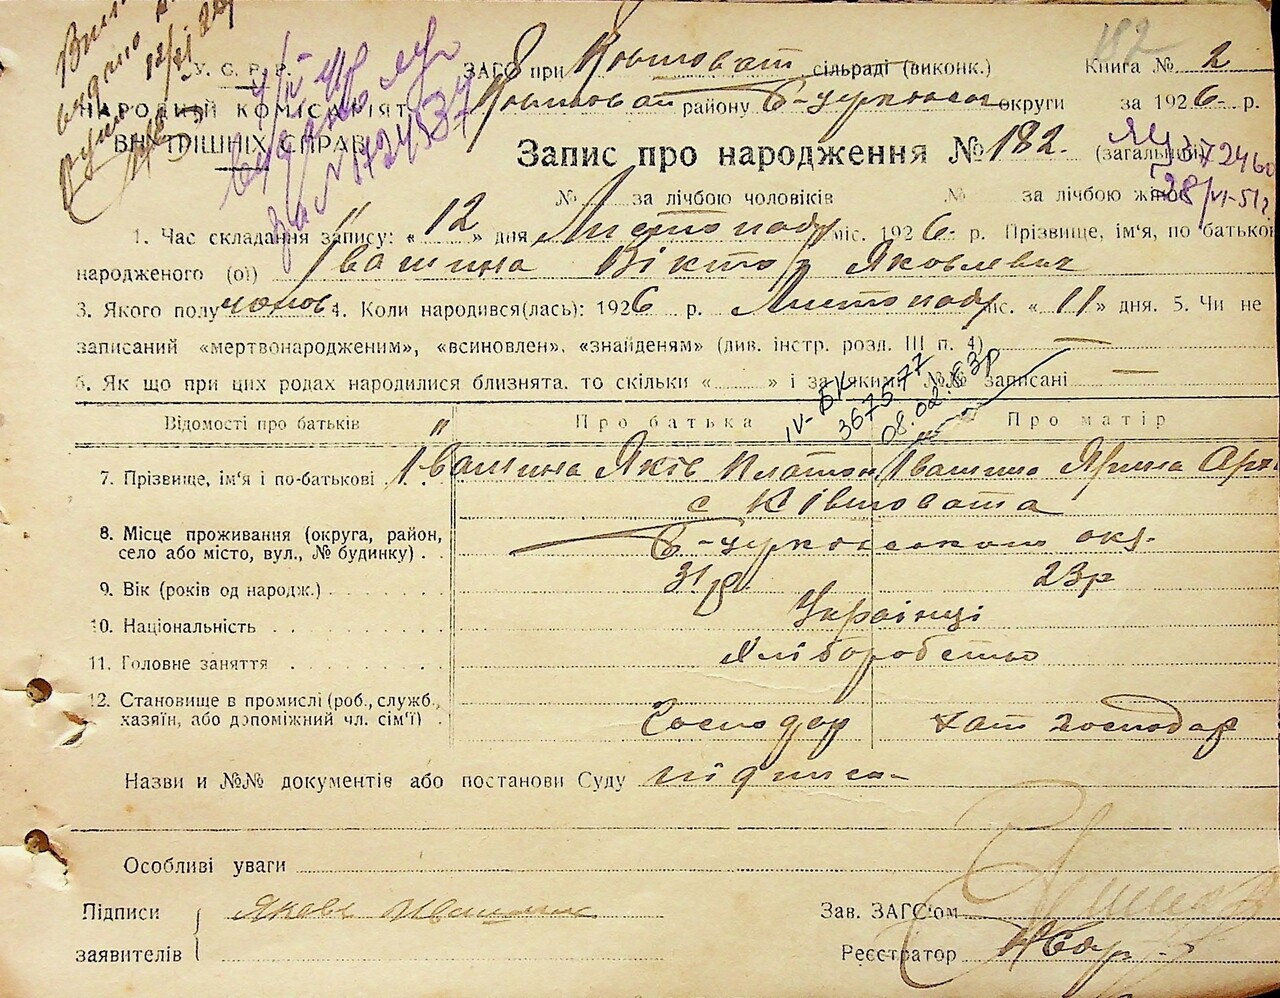 182
У. С. Р. Р.
НАРОДНИЙ КОМІСАРІЯТ
ВНУТРІШНІХ СПРАВ
ЗАГС при Ковшоват сільраді (виконк.) Книга № 2
Ковшоват району Б-Церківськ округи за 1926 р.
Запис про народження № 182. (загальний)
№ за лічбою чоловіків № за лічбою жінок
28/VI-51 г.
1. Час складання запису: « 12 » дня Листопаду міс. 1926 р. Прізвище, ім'я, по батькові
народженого (ої) Івашина Віктор Яковлевич
3. Якого полу чолов 4. Коли народився(лась): 1926 р. Листопаду міс. « 11 » дня. 5. Чи не
записаний «мертвонародженим», «всиновлен», «знайденям» (див. інстр. розд. III п. 4) —
6. Як що при цих родах народилися близнята, то скільки « » і за якими №№ записані —
IV-БК
367577
08.02.83р
Відомості про батьків Про батька Про матір
7. Прізвище, ім'я і по-батькові Івашина Яків Платон Івашина Ярина
с Ківшовата
8. Місце проживання (округа, район,
село або місто, вул., № будинку) Б-Церківського окр.
9. Вік (років од народж.) 31р 23р
10. Національність Українці
11. Головне заняття Хліборобство
12. Становище в промислі (роб., служб.,
хазяїн, або допоміжний чл. сім'ї) Господар хат господар
Назви и №№ документів або постанови Суду підписа
Особливі уваги
Підписи
заявителів
Зав. ЗАГС'ом
Реєстратор